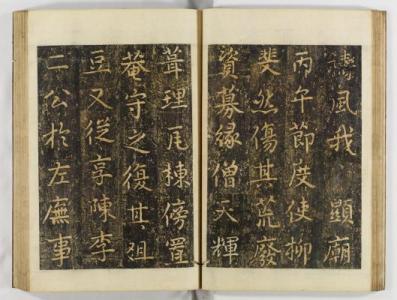 風我 顯廟
丙午節度使柳
斐然傷其荒廢
資募緣僧天輝
葺理瓦棟傍置
菴守之復其俎
豆又從享陳李
二公於左廡事